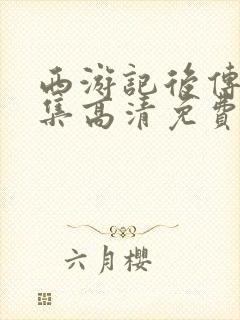 西游記後傳
集高清免費
六月櫻